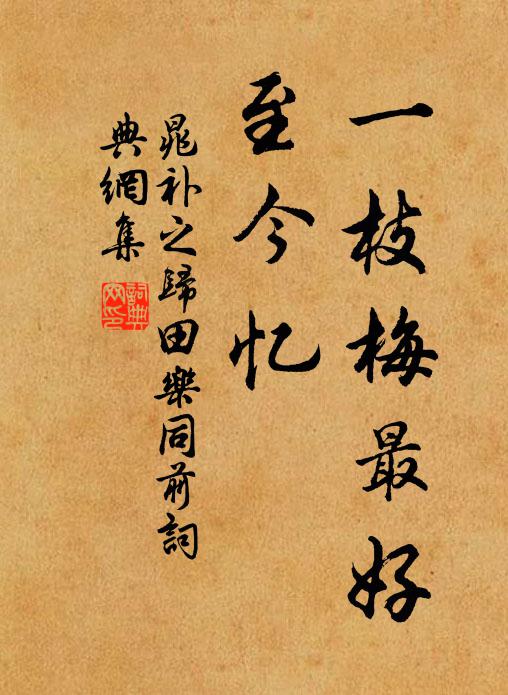 一枝梅最好
至今忆
晁补之歸田樂同前詞
典網集
詞典
网印